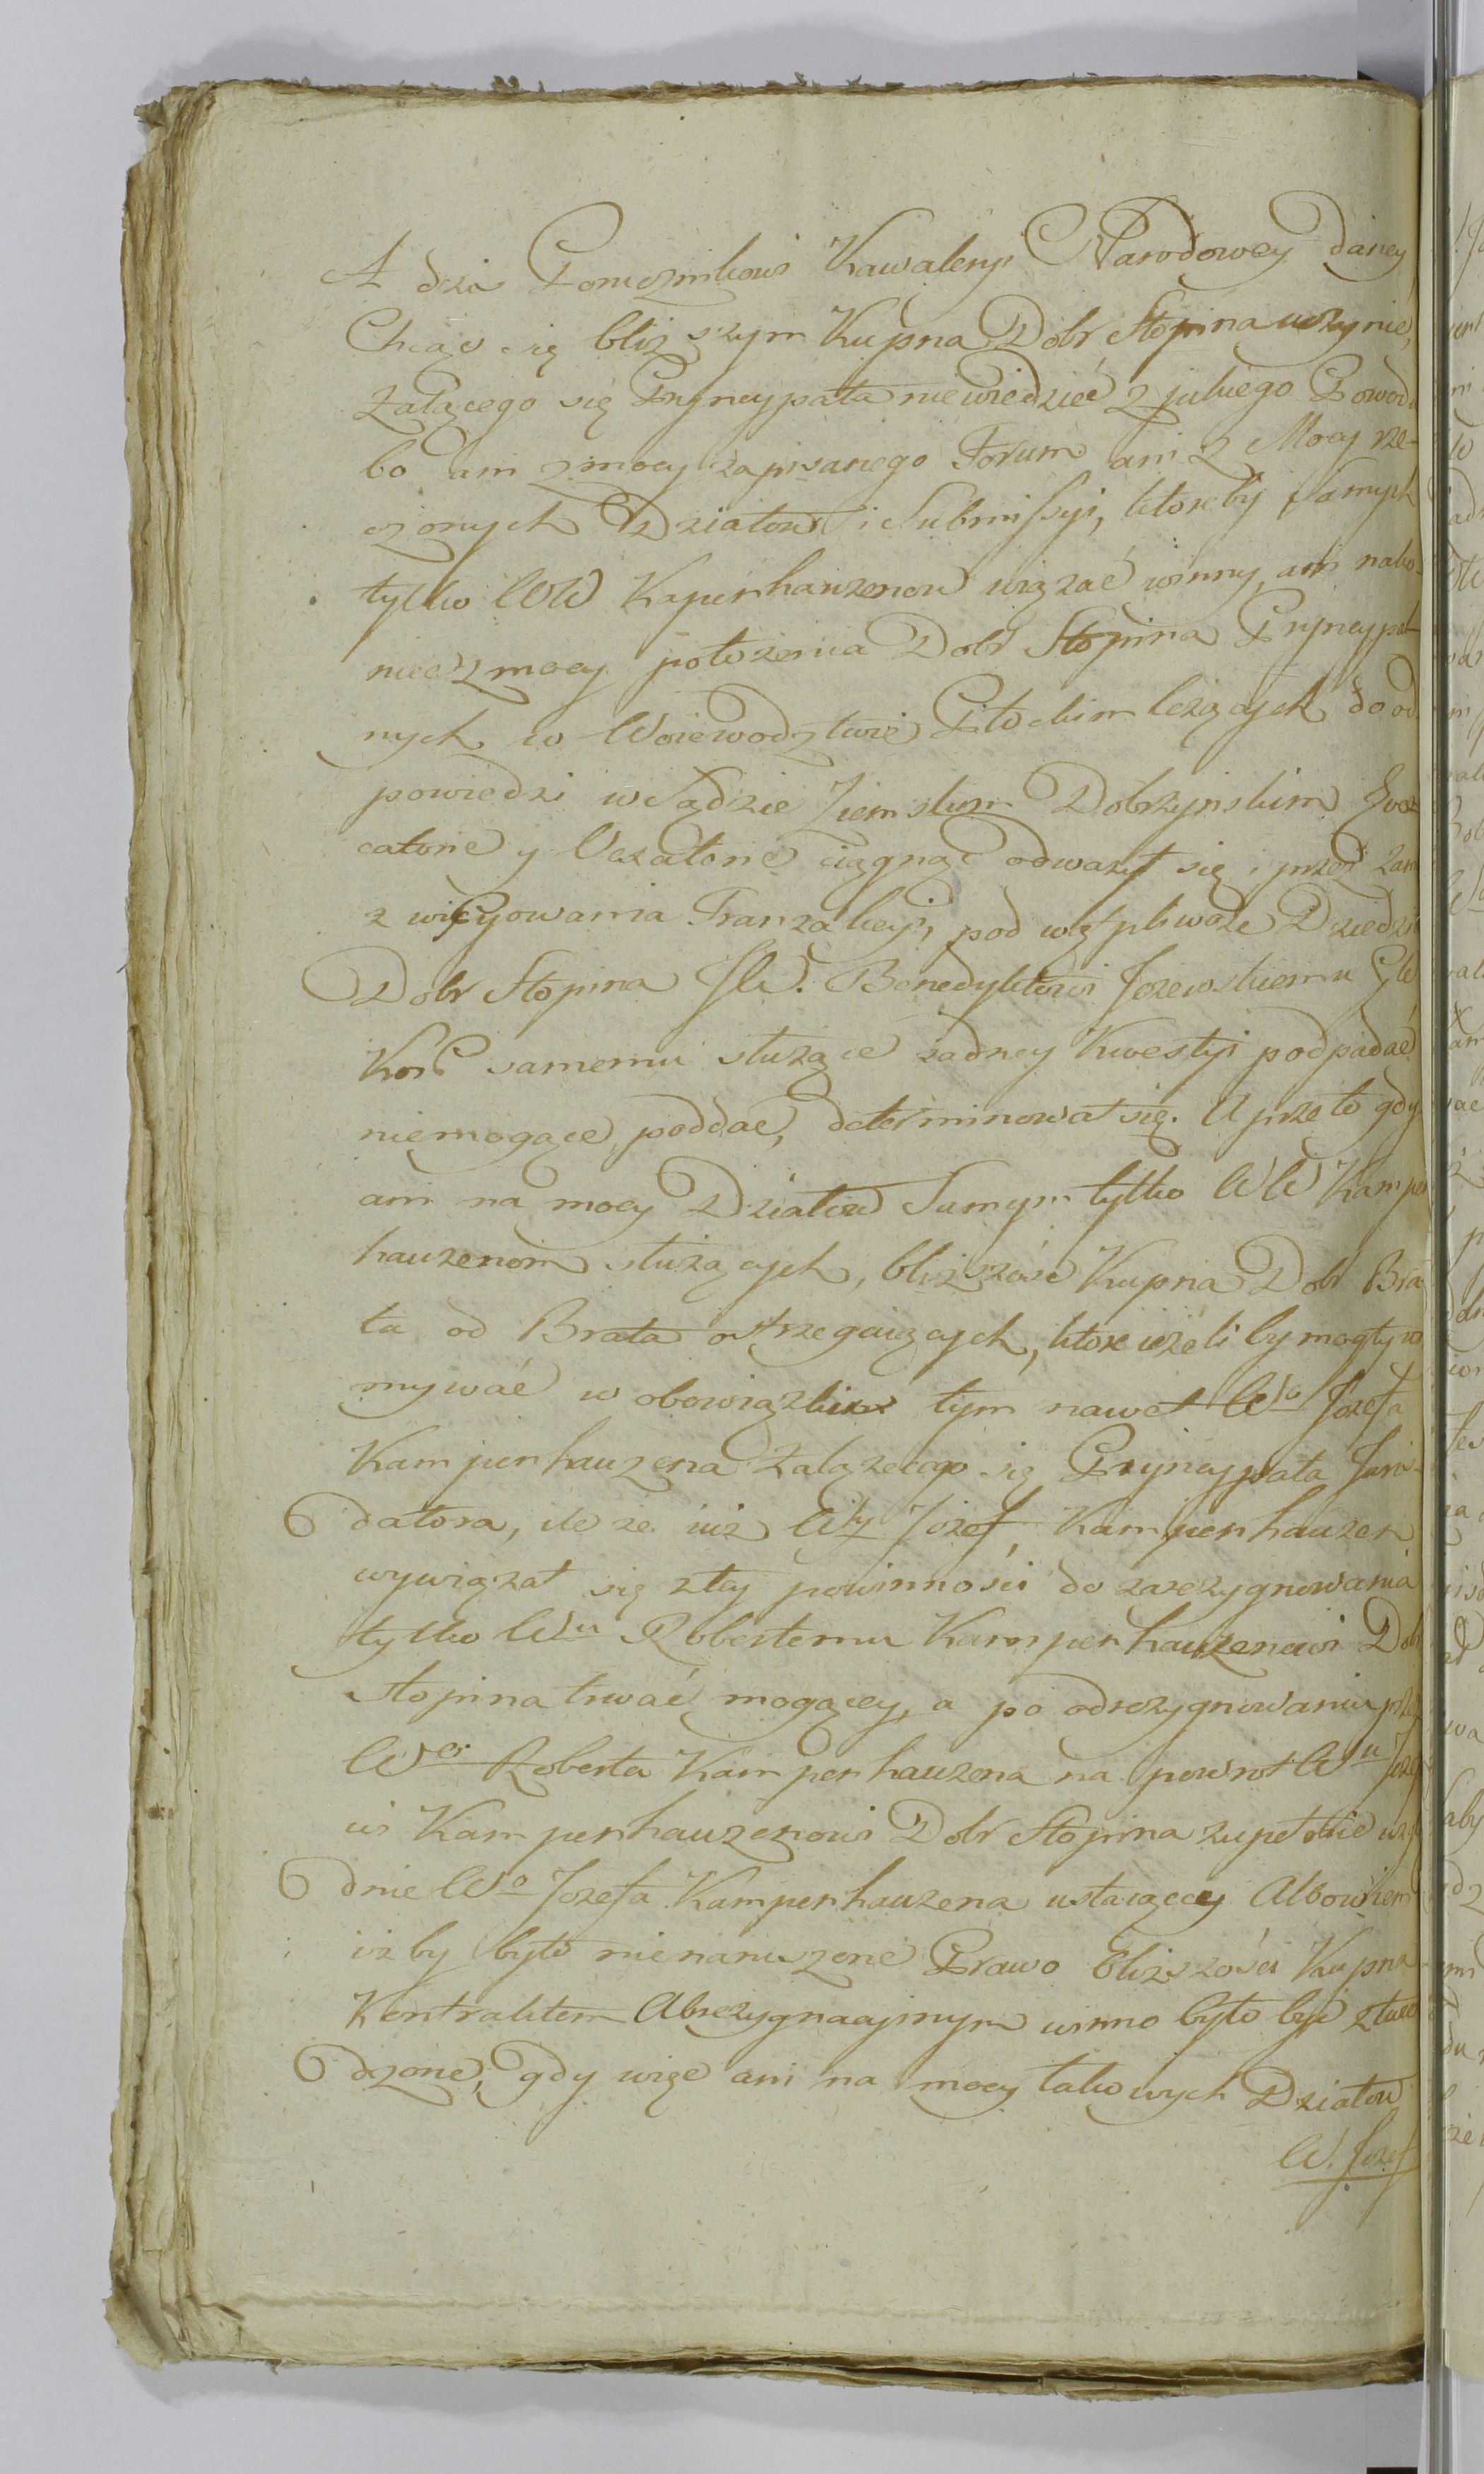 A dzie Pomocznikowi Kawaleryi Narodowey daney
Chcąc się bliższym Kupna Dobr Stopina uczynić,
Zalącego się Pryncypała niewiedzieć z jakiego Powodu
bo ani z mocy zapisanego Forum ani z Mocy rze-
czonych Działow i Submissyi, ktoreby samych
tylko WW Kapenhauzenow wiązać winny, ani nako-
niec z mocy położenia Dobr Stopina Pryncypal-
nych w Woiewodztwie Płockim leżących do od-
powiedzi w Sądzie Ziemskim Dobrzynskim
catorie y Vexatorie ciągnąc odważył się, przez
Tranzakcyi, pod wątpliwośc
Dobr Stopina Benedyktowi Jezewskiemu
samemu służące żadney Kwestyi podpadać
niemogące, poddać, determinował się. A przeto gdy
ani na mocy Działow Samym tylko WW Kampen
hauzenom służących, bliższośc Kupna Dobr Bra
ta od Brata ostrzegaiących, ktore ieżeli by mogły
mywać w obowiązkiw tym nawet Wo Jozefa
Kampenhauzena Zalącego się Pryncypała
datora, ile ze iuż Wny Jozef Kampenhauzen
wywiązał się z tey powinności do zarezygnowania
tylko Wu Robertemu Kampenhauzenowi Dobr
Stopina trwać mogącey, a po odrezygnowaniu przez
Wo Roberta Kampenhauzena na powrot Wu
wi Kampenhauzenowi Dobr Stopina zupełnie wzglę
dnie Wo Jozefa Kampenhauzena ustaiącey Albowiem
iżby było nienaruszone Prawo bliższości Kupna
Kontraktem Abrezygnacyjnym winno było być
dzone, gdy więc ani na mocy takowych Działow
W. Jozef